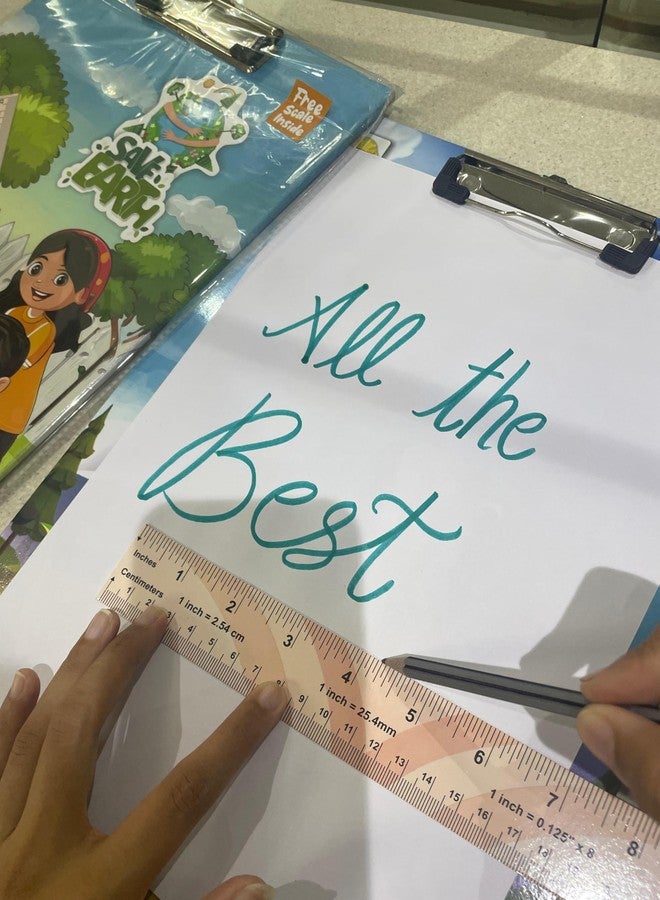 Free
Scale
Inside
SAVE
EARTH
All the
Best
Inches
1 2 3 4 5 6 7 8
1 inch = 2.54 cm
1 inch = 25.4mm
1 inch = 0.125" x 8
Centimeters
1 2 3 4 5 6 7 8 9 10 11 12 13 14 15 16 17 18